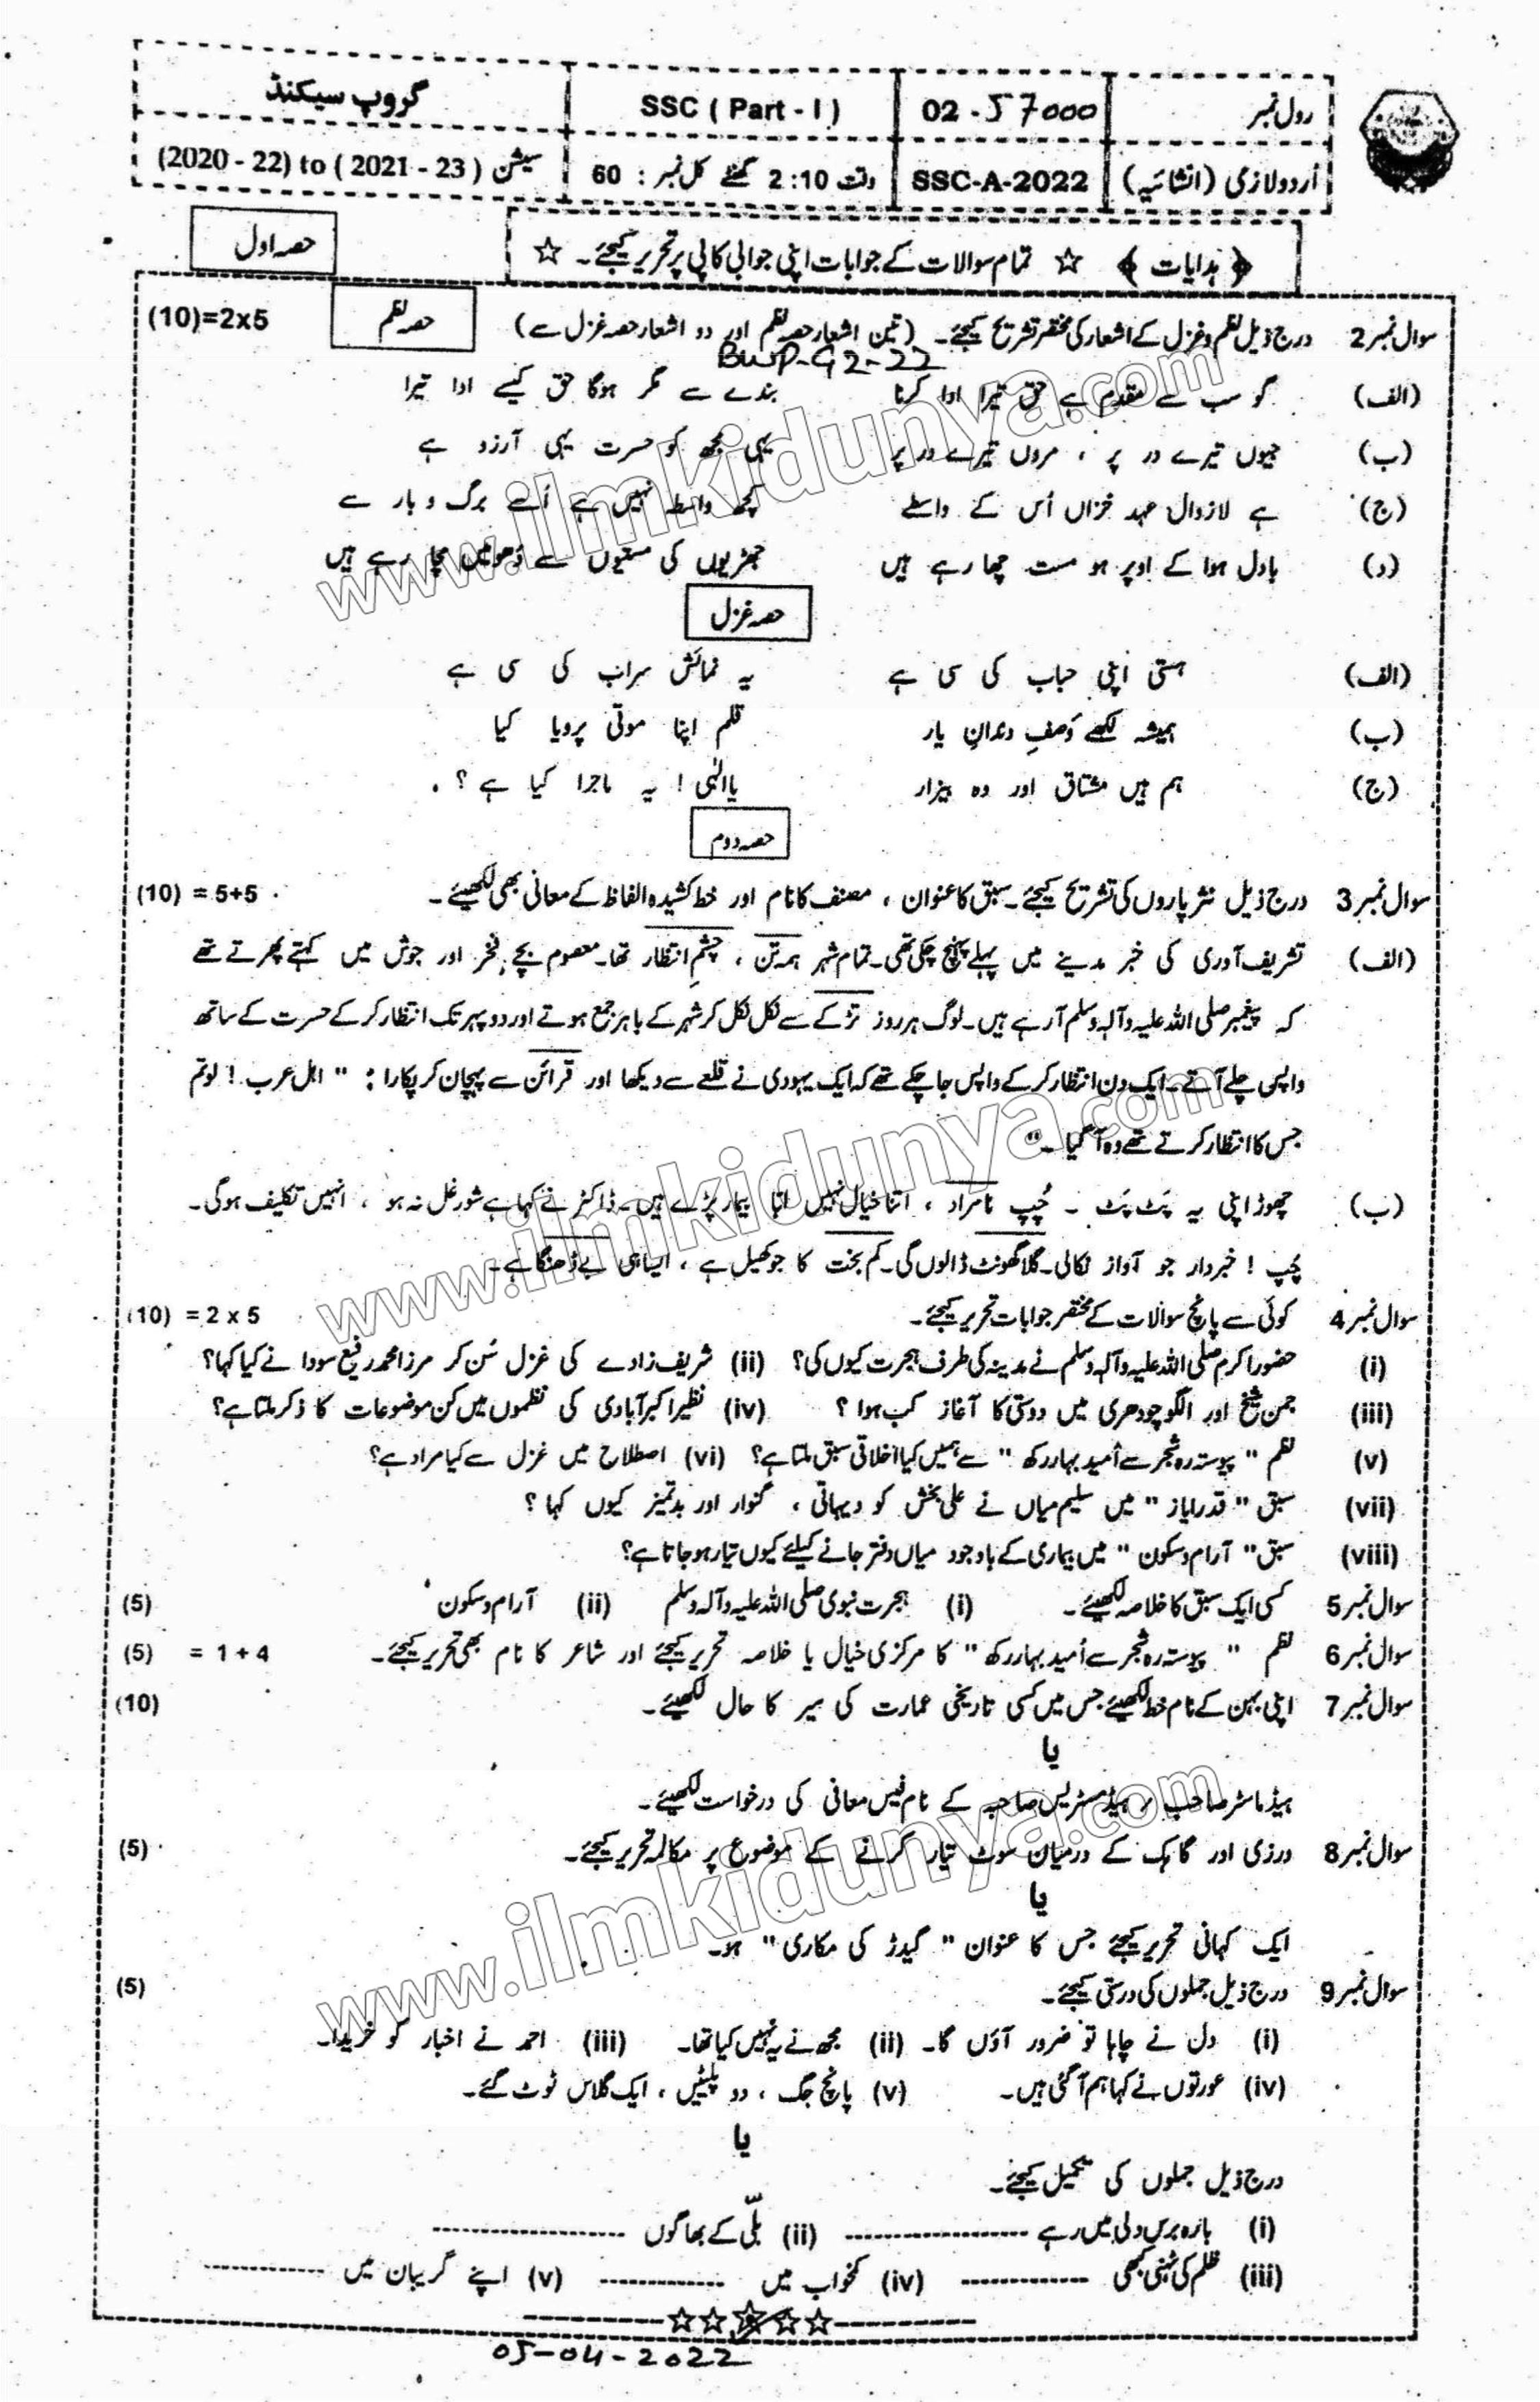 رول نمبر 02-57000 SSC ( Part - I ) گروپ سیکنڈ
اُردو لازمی (انشائیہ) SSC-A-2022 وقت 2:10 گھنٹے کل نمبر : 60 سیشن (2020 - 22) to ( 2021 - 23 )
﴿ ہدایات ﴾ ☆ تمام سوالات کے جوابات اپنی جوابی کاپی پر تحریر کیجئے۔ ☆ حصہ اول
سوال نمبر 2 درج ذیل نظم و غزل کے اشعار کی مختصر تشریح کیجئے۔ (تین اشعار حصہ نظم اور دو اشعار حصہ غزل سے) حصہ نظم (10)=2x5
BWP-G2-22
(الف) گو سب سے مقدم ہے حق تیرا ادا کرنا بندے سے مگر ہوگا حق کیسے ادا تیرا
(ب) جیوں تیرے در پر ، مروں تیرے در پر یہی مجھ کو حسرت یہی آرزو ہے
(ج) ہے لازوال عہد خزاں اُس کے واسطے کچھ واسطہ نہیں ہے اُسے برگ و بار سے
(د) بادل ہوا کے اوپر ہو مست چھا رہے ہیں جھڑیوں کی مستیوں سے دُھومیں مچا رہے ہیں
حصہ غزل
(الف) ہستی اپنی حباب کی سی ہے یہ نمائش سراب کی سی ہے
(ب) ہمیشہ لکھے وَصفِ دندانِ یار قلم اپنا موتی پرویا کیا
(ج) ہم ہیں مشتاق اور وہ بیزار یا الٰہی ! یہ ماجرا کیا ہے ؟
حصہ دوم
سوال نمبر 3 درج ذیل نثر پاروں کی تشریح کیجئے۔ سبق کا عنوان ، مصنف کا نام اور خط کشیدہ الفاظ کے معانی بھی لکھیئے۔ (10) = 5+5
(الف) تشریف آوری کی خبر مدینے میں پہلے پہنچ چکی تھی۔ تمام شہر ہمہ تن ، چشمِ انتظار تھا۔ معصوم بچے فخر اور جوش میں کہتے پھرتے تھے
کہ پیغمبر صلی اللہ علیہ وآلہ وسلم آ رہے ہیں۔ لوگ ہر روز تڑکے سے نکل نکل کر شہر کے باہر جمع ہوتے اور دوپہر تک انتظار کر کے حسرت کے ساتھ
واپس چلے آتے۔ ایک دن انتظار کر کے واپس جا چکے تھے کہ ایک یہودی نے قلعے سے دیکھا اور قرائن سے پہچان کر پکارا : " اہل عرب ! لو تم
جس کا انتظار کرتے تھے وہ آ گیا ۔"
(ب) چھوڑ اپنی یہ پَٹ پَٹ ۔ چُپ نامراد ، اتنا خیال نہیں ابا بیمار پڑے ہیں۔ ڈاکٹر نے کہا ہے شور غل نہ ہو ، انہیں تکلیف ہوگی۔
چُپ ! خبردار جو آواز نکالی۔ گلا گھونٹ ڈالوں گی۔ کم بخت کا جو کھیل ہے ، ایسا ہی بے ڈھنگا ہے۔
سوال نمبر 4 کوئی سے پانچ سوالات کے مختصر جوابات تحریر کیجئے۔ (10) = 2 x 5
(i) حضور اکرم صلی اللہ علیہ وآلہ وسلم نے مدینہ کی طرف ہجرت کیوں کی؟ (ii) شریف زادے کی غزل سُن کر مرزا محمد رفیع سودا نے کیا کہا؟
(iii) جمن شیخ اور الگو چودھری میں دوستی کا آغاز کب ہوا ؟ (iv) نظیر اکبر آبادی کی نظموں میں کن موضوعات کا ذکر ملتا ہے؟
(v) نظم " پیوستہ رہ شجر سے اُمید بہار رکھ " سے ہمیں کیا اخلاقی سبق ملتا ہے؟ (vi) اصطلاح میں غزل سے کیا مراد ہے؟
(vii) سبق " قدر ایاز " میں سلیم میاں نے علی بخش کو دیہاتی ، گنوار اور بدتمیز کیوں کہا ؟
(viii) سبق " آرام و سکون " میں بیماری کے باوجود میاں دفتر جانے کیلئے کیوں تیار ہو جاتا ہے؟
سوال نمبر 5 کسی ایک سبق کا خلاصہ لکھیئے۔ (i) ہجرت نبوی صلی اللہ علیہ وآلہ وسلم (ii) آرام و سکون (5)
سوال نمبر 6 نظم " پیوستہ رہ شجر سے اُمید بہار رکھ " کا مرکزی خیال یا خلاصہ تحریر کیجئے اور شاعر کا نام بھی تحریر کیجئے۔ (5) = 1 + 4
سوال نمبر 7 اپنی بہن کے نام خط لکھیئے جس میں کسی تاریخی عمارت کی سیر کا حال لکھیئے۔ (10)
یا
ہیڈ ماسٹر صاحب / ہیڈ مسٹریس صاحبہ کے نام فیس معافی کی درخواست لکھیئے۔
سوال نمبر 8 درزی اور گاہک کے درمیان سوٹ تیار کرنے کے موضوع پر مکالمہ تحریر کیجئے۔ (5)
یا
ایک کہانی تحریر کیجئے جس کا عنوان " گیدڑ کی مکاری " ہو۔
سوال نمبر 9 درج ذیل جملوں کی درستی کیجئے۔ (5)
(i) دل نے چاہا تو ضرور آؤں گا۔ (ii) مجھ نے یہ نہیں کیا تھا۔ (iii) احمد نے اخبار کو خریدا۔
(iv) عورتوں نے کہا ہم آ گئی ہیں۔ (v) پانچ جگ ، دو پلیٹیں ، ایک گلاس ٹوٹ گئے۔
یا
درج ذیل جملوں کی تکمیل کیجئے۔
(i) بارہ برس دلی میں رہے ---------- (ii) بلّی کے بھاگوں ----------
(iii) ظلم کی ٹہنی کبھی ---------- (iv) کمخواب میں ---------- (v) اپنے گریبان میں ----------
☆☆☆☆☆
05-04-2022
www.ilmkidunya.com
www.ilmkidunya.com
www.ilmkidunya.com